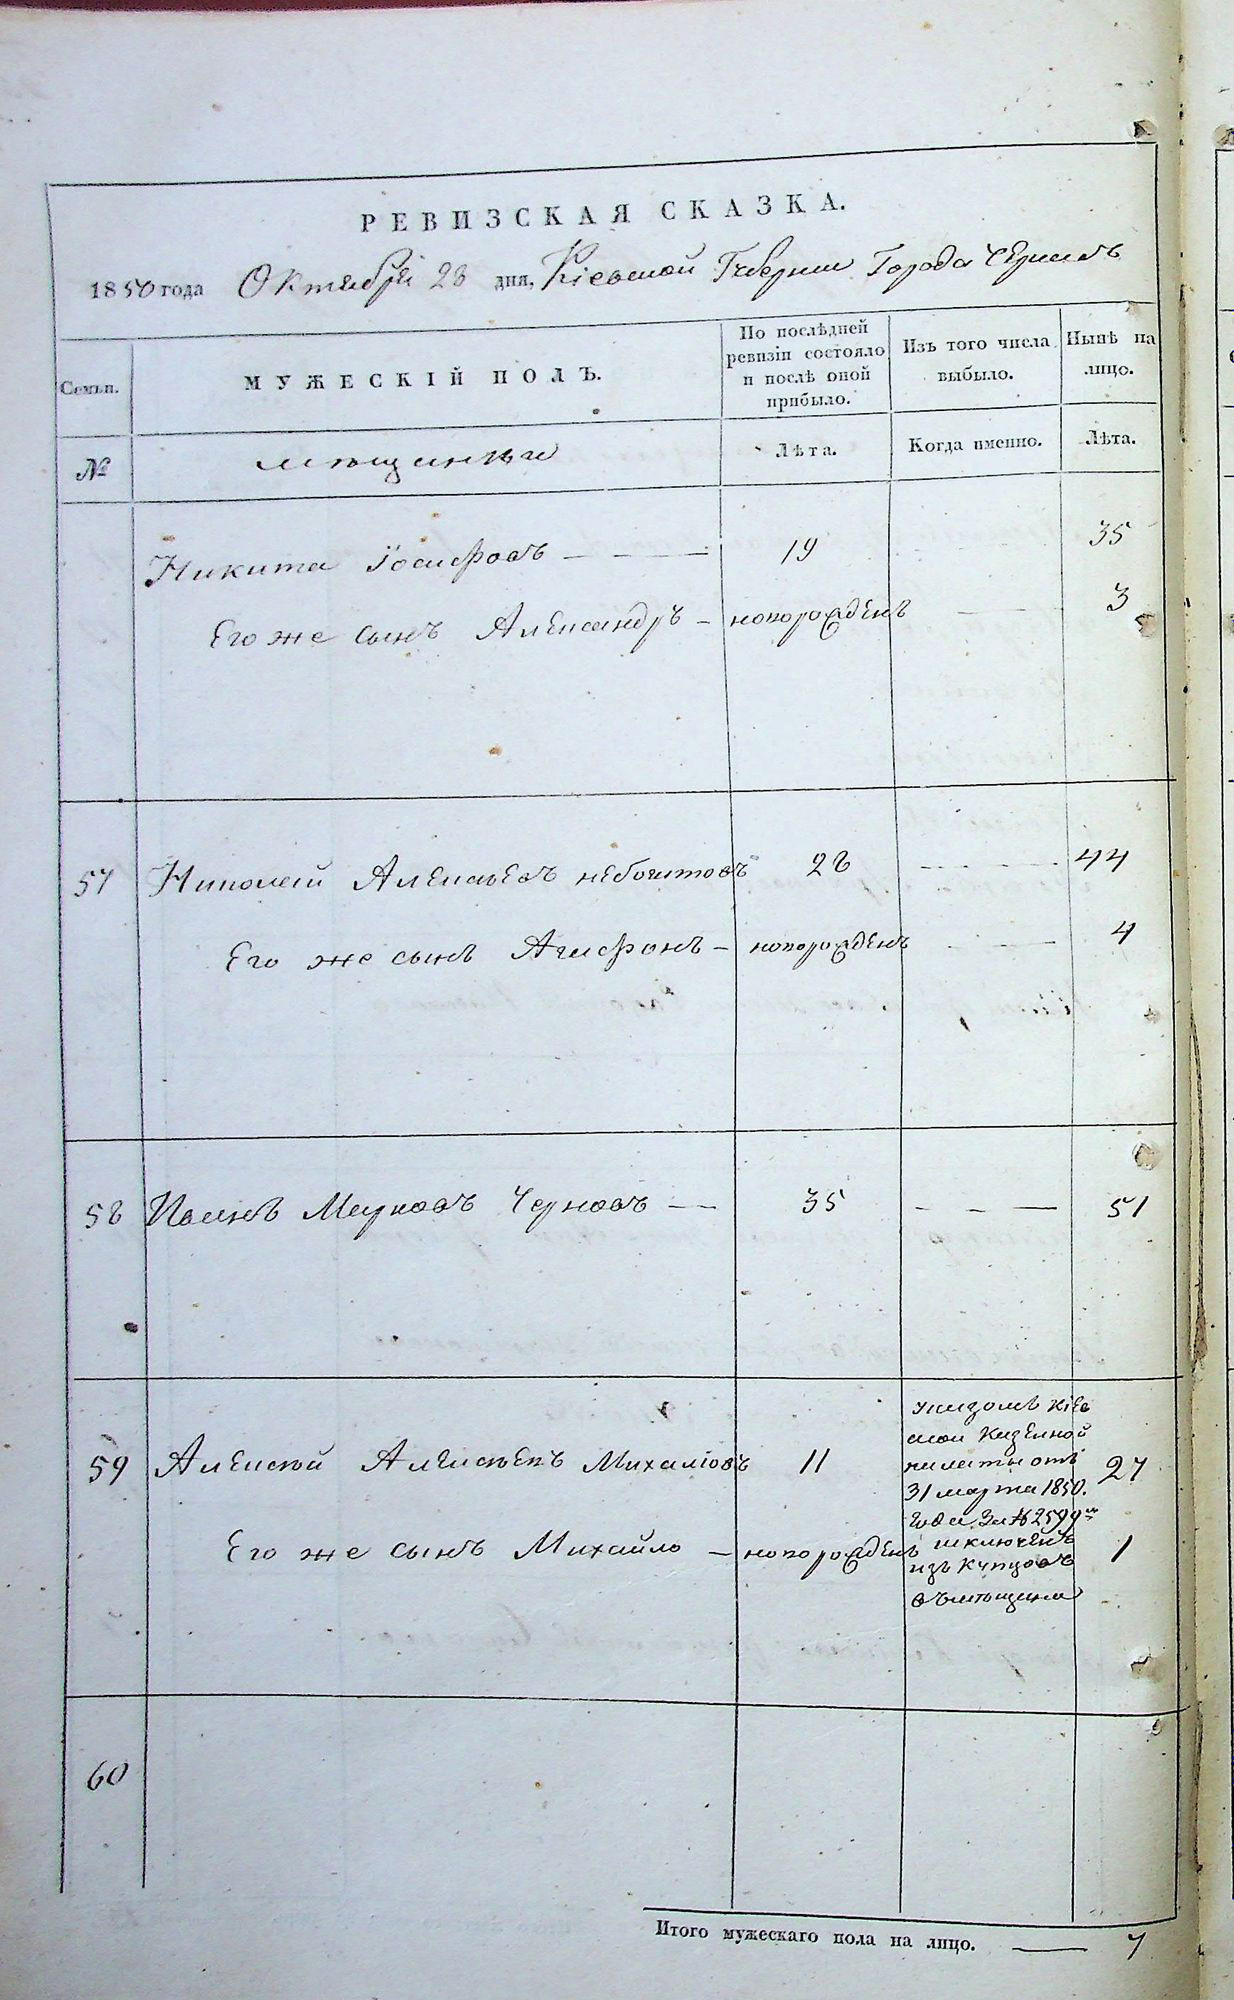 РЕВИЗСКАЯ СКАЗКА.
1850 года Октября 23 дня, Кіевской Губерніи Города Черкасъ
Семьи.
МУЖЕСКІЙ ПОЛЪ.
По послѣдней ревизіи состояло и послѣ оной прибыло.
Изъ того числа выбыло.
Нынѣ на лицо.
№
мѣщанѣ
Лѣта.
Когда именно.
Лѣта.
Никита Іосифовъ — 19 35
Его же сынъ Александръ — новорожденъ — 3
57 Николай Алексѣевъ 28 — 44
Его же сынъ Агафонъ — новорожденъ — 4
58 Иванъ Марковъ Черновъ — 35 — 51
59 Алексѣй Алексѣевъ Михайловъ 11 27
Его же сынъ Михайло — новорожденъ 1
Указомъ Кіев
ской Казенной
палаты отъ
31 марта 1850.
года за №
изъ Купцовъ
60
Итого мужескаго пола на лицо. — 7